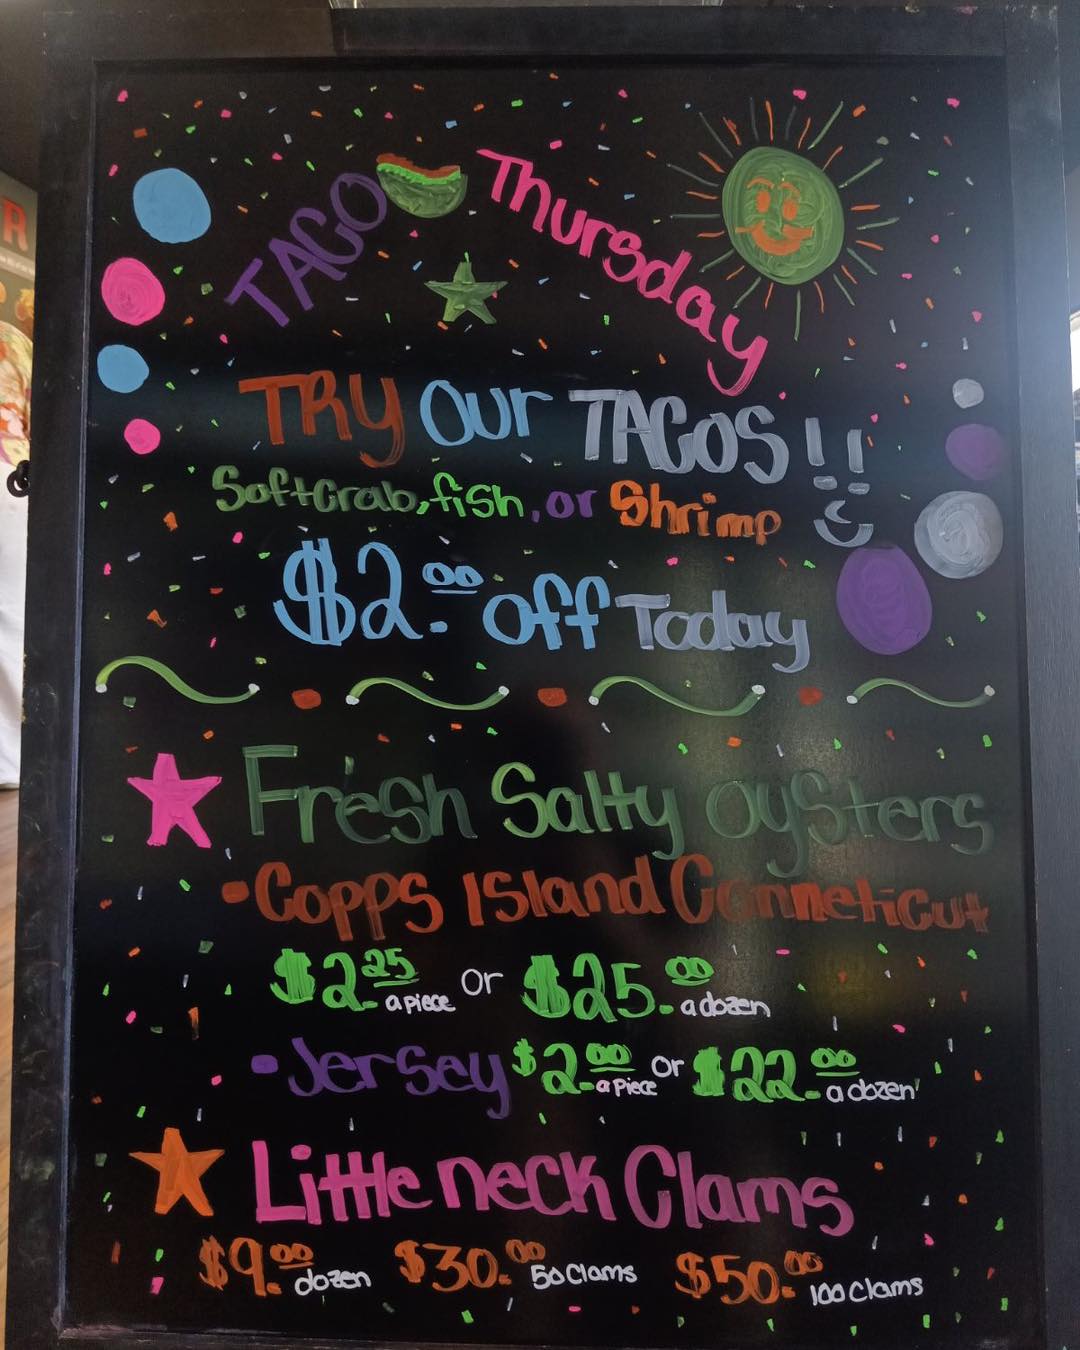 TACO Thursday
TRY Our TACOS!!
Softcrab, fish, or Shrimp
$2.00 off Today
Fresh Salty oysters
• Copps Island Conneticut
$2.25 a piece or $25.00 a dozen
• Jersey $2.00 a piece or $22.00 a dozen
Little neck Clams
$9.00 dozen $30.00 50 Clams $50.00 100 Clams
R